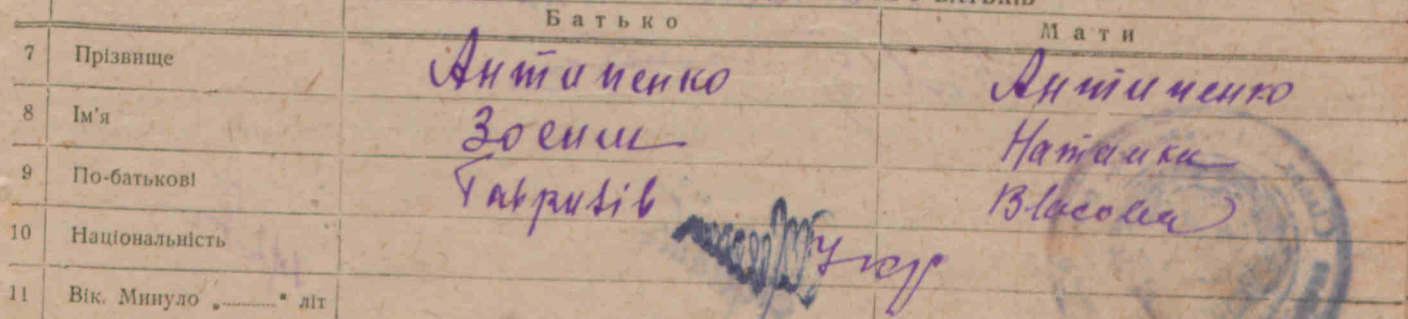 Батько Мати
7 Прізвище Антипенко Антипенко
8 Ім'я Зосим
9 По-батькові Гаврилів Власовна
10 Національність Укр
11 Вік. Минуло „........“ літ